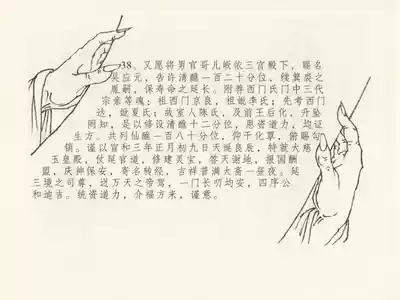 38。又愿将男官哥儿皈依三宫殿下，赐名
吴应元，告许清醮一百二十分位，续箕裘之
胤嗣，保寿命之延长。附荐西门氏门中三代
宗亲等魂：祖西门京良，祖妣李氏；先考西门
达，妣夏氏；故室人陈氏，及前王后化，升坠
罔知，是以修设清醮十二分位，恩资道力，均证
生方。共列仙醮一百八十分位，仰干化覃，俯赐勾
销。谨以宣和三年正月初九日天诞良辰，特就大慈
玉皇殿，仗延官道，修建灵宝，答天谢地，报国酬
盟，庆神保安，寄名转经，吉祥普满大斋一昼夜。延
三境之司尊，迓万天之帝驾，一门长叨均安，四序公
和迪吉。统资道力，介福方来，谨意。